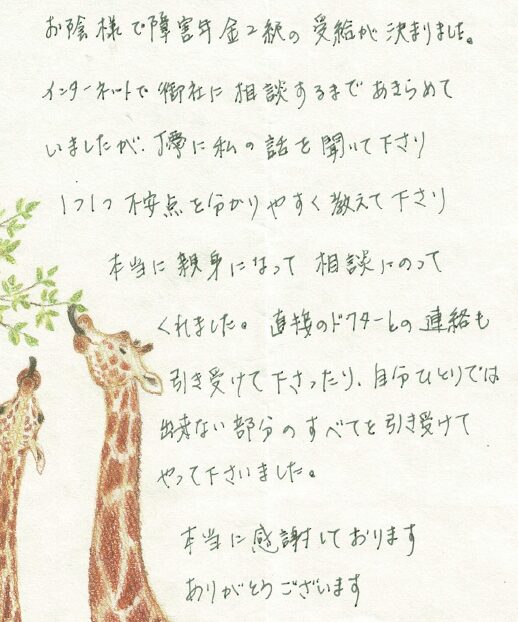 お陰様で障害年金2級の受給が決まりました。
インターネットで御社に相談するまであきらめて
いましたが、丁寧に私の話を聞いて下さり
1つ1つ不安点を分かりやすく教えて下さり
本当に親身になって相談にのって
くれました。直接のドクターとの連絡も
引き受けて下さったり、自分ひとりでは
出来ない部分のすべてを引き受けて
やって下さいました。
本当に感謝しております
ありがとうございます